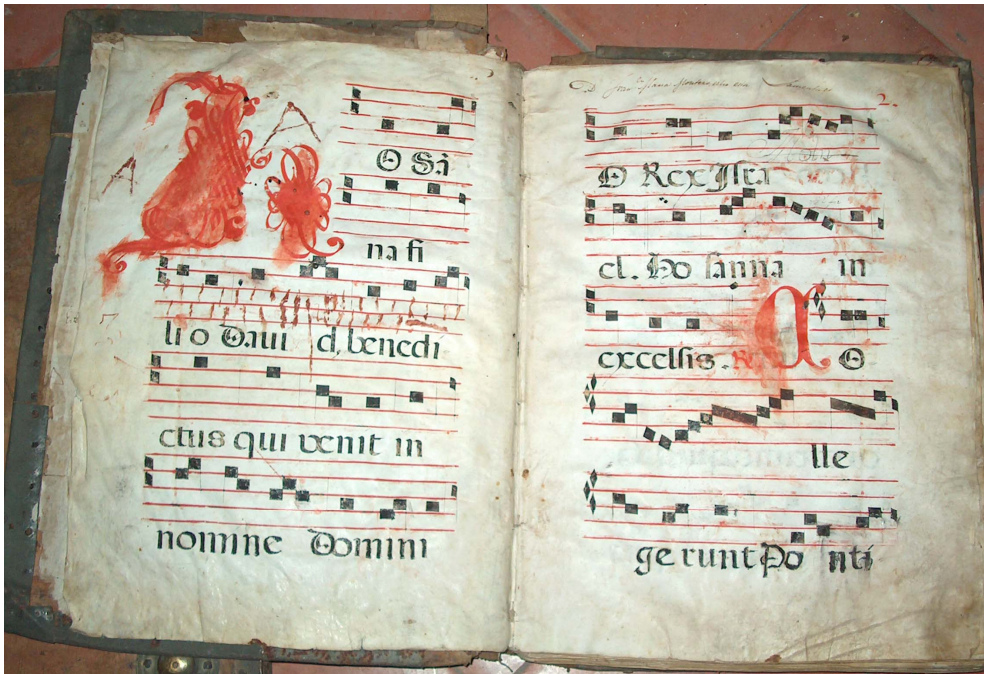 A A
O Sa
na fi
li o Daui d, benedi
ctus qui venit in
nomine Domini
2.
O Rex Isra
el. Ho sanna in
excelsis. O
lle
ge runt Po nti